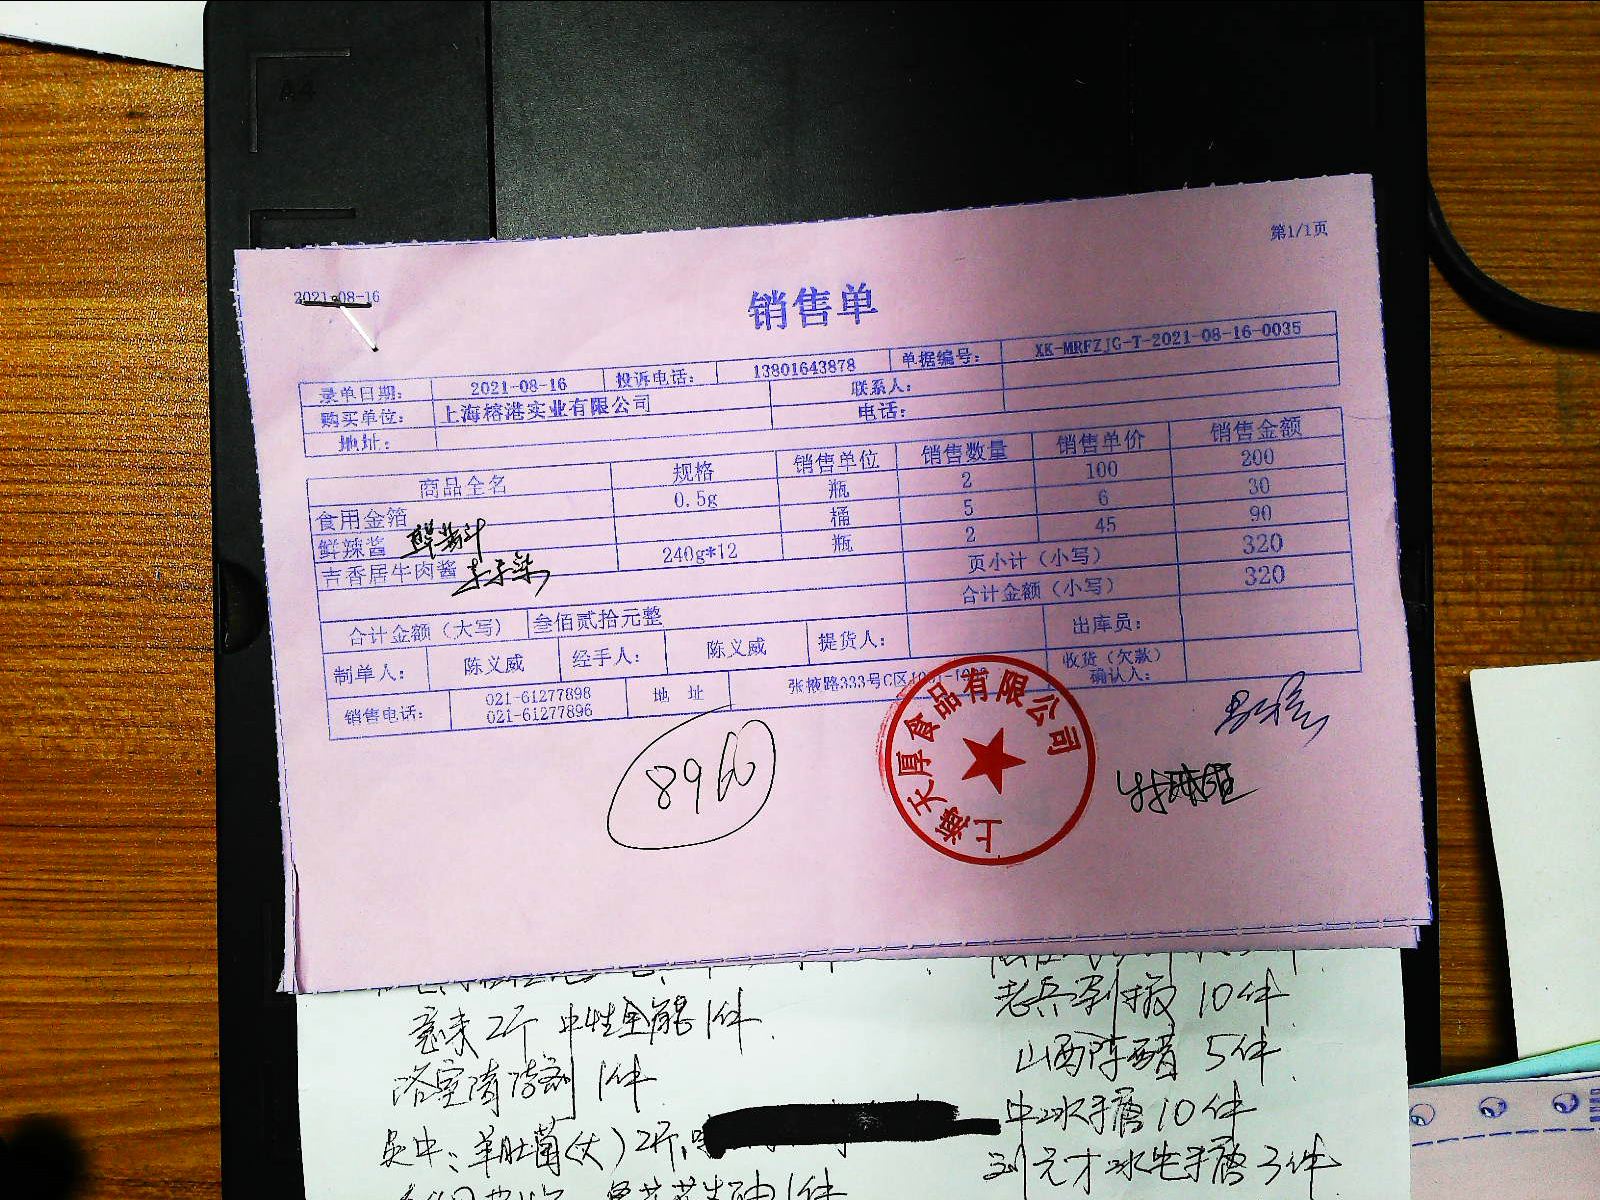 A4
第1/1页
2021-08-16
销售单
录单日期： 2021-08-16 投诉电话： 13801643878 单据编号： XK-MRFZJG-T-2021-08-16-0035
购买单位： 上海榕港实业有限公司 联系人：
地址： 电话：
商品全名 规格 销售单位 销售数量 销售单价 销售金额
食用金箔 0.5g 瓶 2 100 200
鲜辣酱 桶 5 6 30
吉香居牛肉酱 240g*12 瓶 2 45 90
页小计（小写） 320
合计金额（大写） 叁佰贰拾元整 合计金额（小写） 320
制单人： 陈义威 经手人： 陈义威 提货人： 出库员：
销售电话： 021-61277898 021-61277896 地 址 张掖路333号C区 收货（欠款）确认人：
8960
上海天厚食品有限公司
2斤 中性 1件
老兵 10件
1件
山西陈醋 5件
10件
羊肚菌(大) 2斤
3件
1件